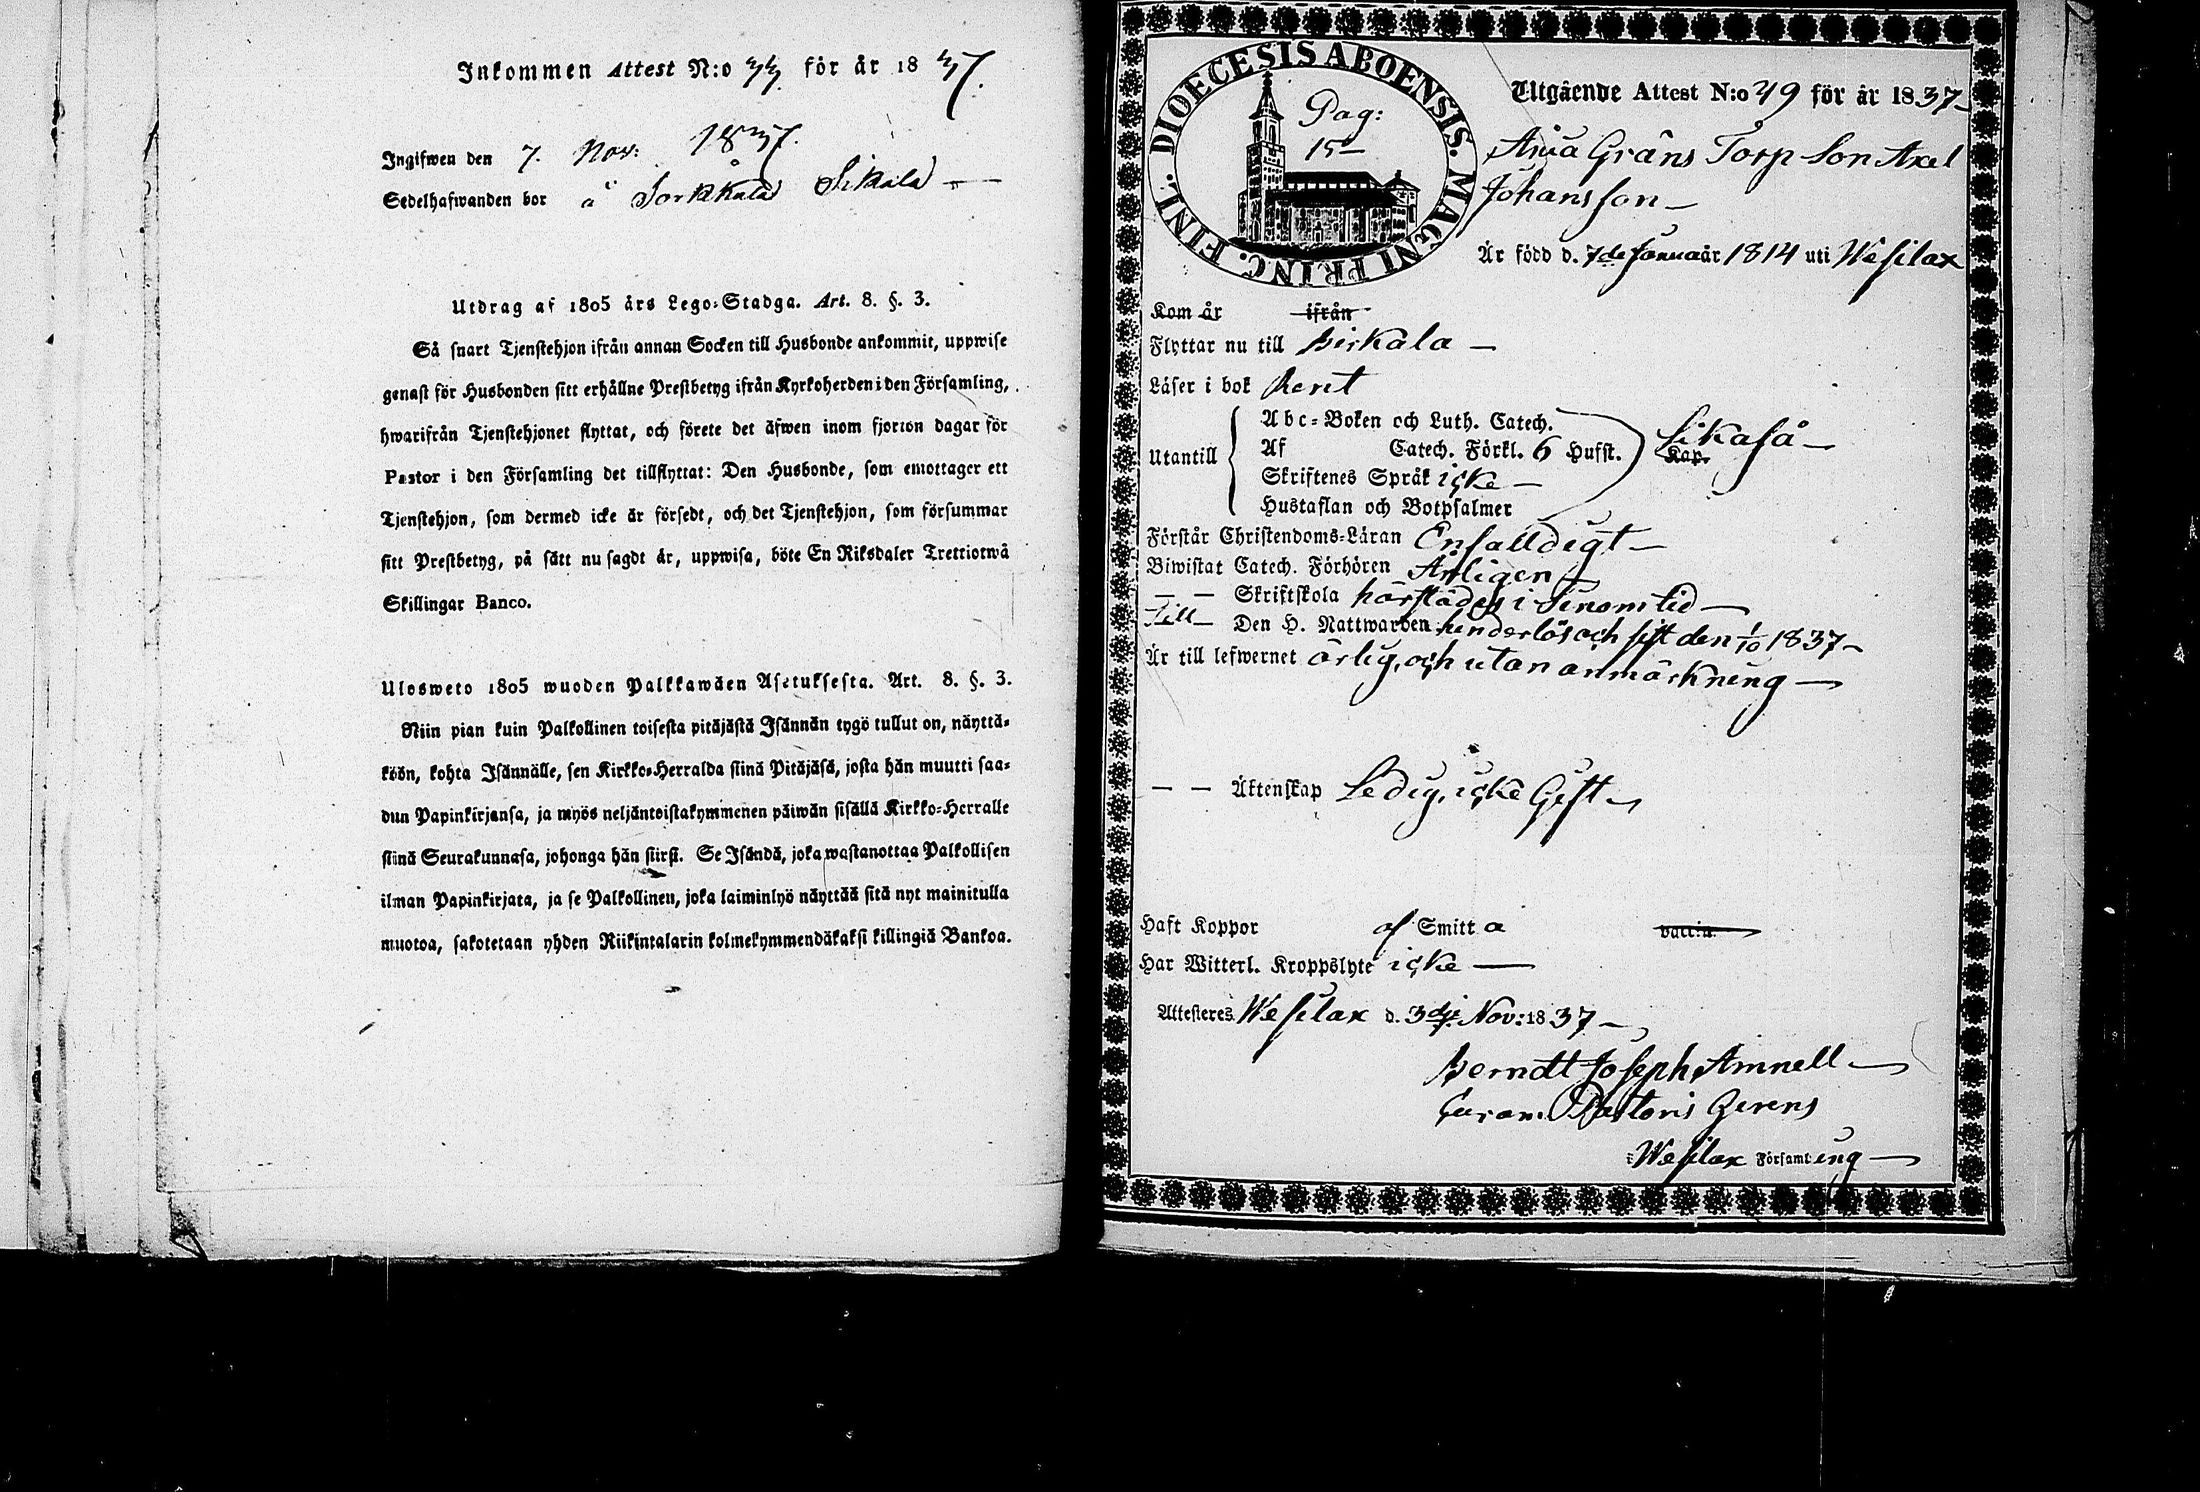 Inkommen Attest N:o 33. för år 1837.
Ingifwen den 7. Nov: 1837.
Sedelhafwanden bor å Sorkkala Sikala
Utdrag af 1805 års Lego-Stadga. Art. 8. §. 3.
Så snart Tjenstehjon ifrån annan Socken till Husbonde ankommit, uppwise
genast för Husbonden sitt erhållne Prestbetyg ifrån Kyrkoherden i den Församling,
hwarifrån Tjenstehjonet flyttat, och förete det äfwen inom fjorton dagar för
Pastor i den Församling det tillflyttat: Den Husbonde, som emottager ett
Tjenstehjon, som dermed icke är försedt, och det Tjenstehjon, som försummar
sitt Prestbetyg, på sätt nu sagdt är, uppwisa, böte En Riksdaler Trettiotwå
Skillingar Banco.
Ulosweto 1805 wuoden Palkkawäen Asetuksesta. Art. 8. §. 3.
Niin pian kuin Palkollinen toisesta pitäjästä Isännän tygö tullut on, näyttä-
köön, kohta Isännälle, sen Kirkko-Herralda siinä Pitäjäsä, josta hän muutti saa-
dun Papinkirjansa, ja myös neljäntoistakymmenen päiwän sisällä Kirkko-Herralle
siinä Seurakunnasa, johonga hän siirsi. Se Isändä, joka wastanottaa Palkollisen
ilman Papinkirjata, ja se Palkollinen, joka laiminlyö näyttää sitä nyt mainitulla
muotoa, sakotetaan yhden Riikintalarin kolmekymmendäkaksi killingiä Bankoa.
DIOECESIS ABOENSIS. MAGNI PRINC. FINL.
Pag:
15
Utgående Attest N:o 49 för år 1837
Gråns Torp Son Axel
Johansson
Är född d. 7de Januaår 1814 uti Wesilax
Kom år ifrån
Flyttar nu till Birkala
Läser i bok Rent
Utantill
Abc-Boken och Luth. Catech.
Af Catech. Förkl. 6 Hufst.
Skriftenes Språk icke
Hustaflan och Botpsalmer
likaså
Kap.
Förstår Christendoms-Läran Enfalldigt
Biwistat Catech. Förhören Årligen
— — Skriftskola härstädes i sinom tid
Till — Den H. Nattwarden hinderlös och sist den 1/10 1837
Är till lefwernet ärlig, och utan anmärkning
— — Äktenskap Ledig, icke Gift
Haft Koppor af Smitta vacc:a
Har Witterl. Kroppslyte icke
Attesteres Wesilax d. 3dje Nov: 1837
Berndt Joseph Amnell
Curam Pastoris Gerens
i Wesilax Församling